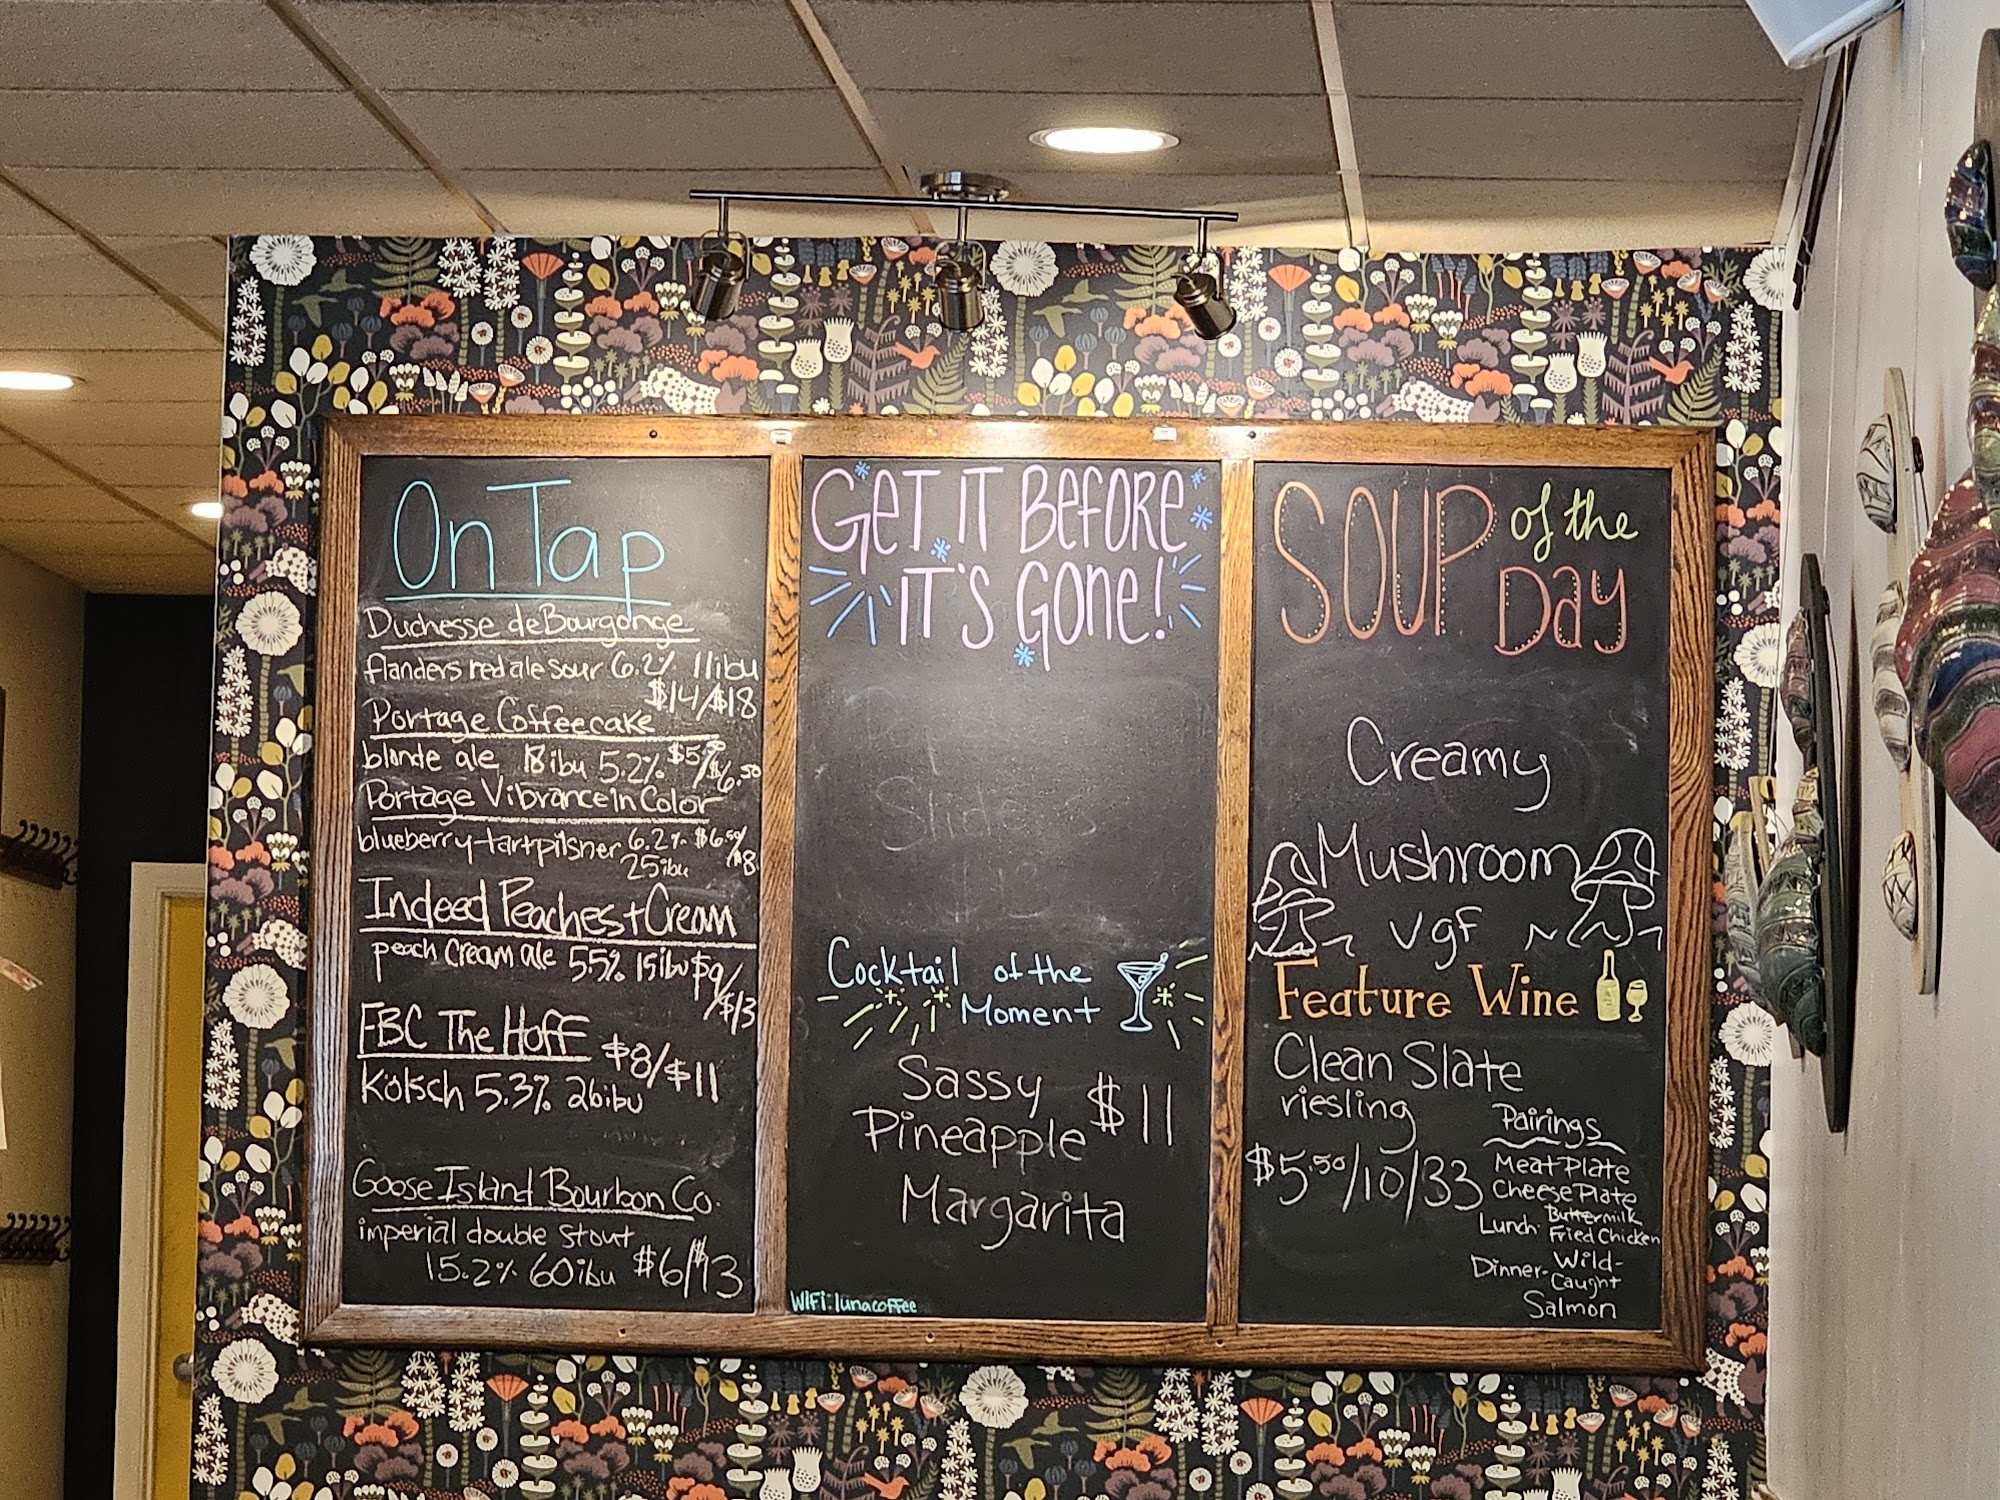 On Tap
Duchesse de Bourgonge
flanders red ale sour 6.2% 11ibu
$14/$18
Portage Coffeecake
blonde ale 18ibu 5.2% $5/$6.50
Portage Vibrance in Color
blueberry-tart pilsner 6.2% $6.50/$8
25ibu
Indeed Peaches + Cream
peach cream ale 5.5% 15ibu $9/$13
FBC The Hoff $8/$11
Kölsch 5.3% 26ibu
Goose Island Bourbon Co.
imperial double stout
15.2% 60ibu $6/$13
GET IT BEFORE
IT'S GONE!
Sliders
Cocktail of the
Moment
Sassy
Pineapple $11
Margarita
WiFi: lunacoffee
SOUP of the
Day
Creamy
Mushroom
vgf
Feature Wine
Clean Slate
riesling
$5.50/10/33
Pairings
Meat Plate
Cheese Plate
Lunch: Buttermilk
Fried Chicken
Dinner- Wild-
Caught
Salmon